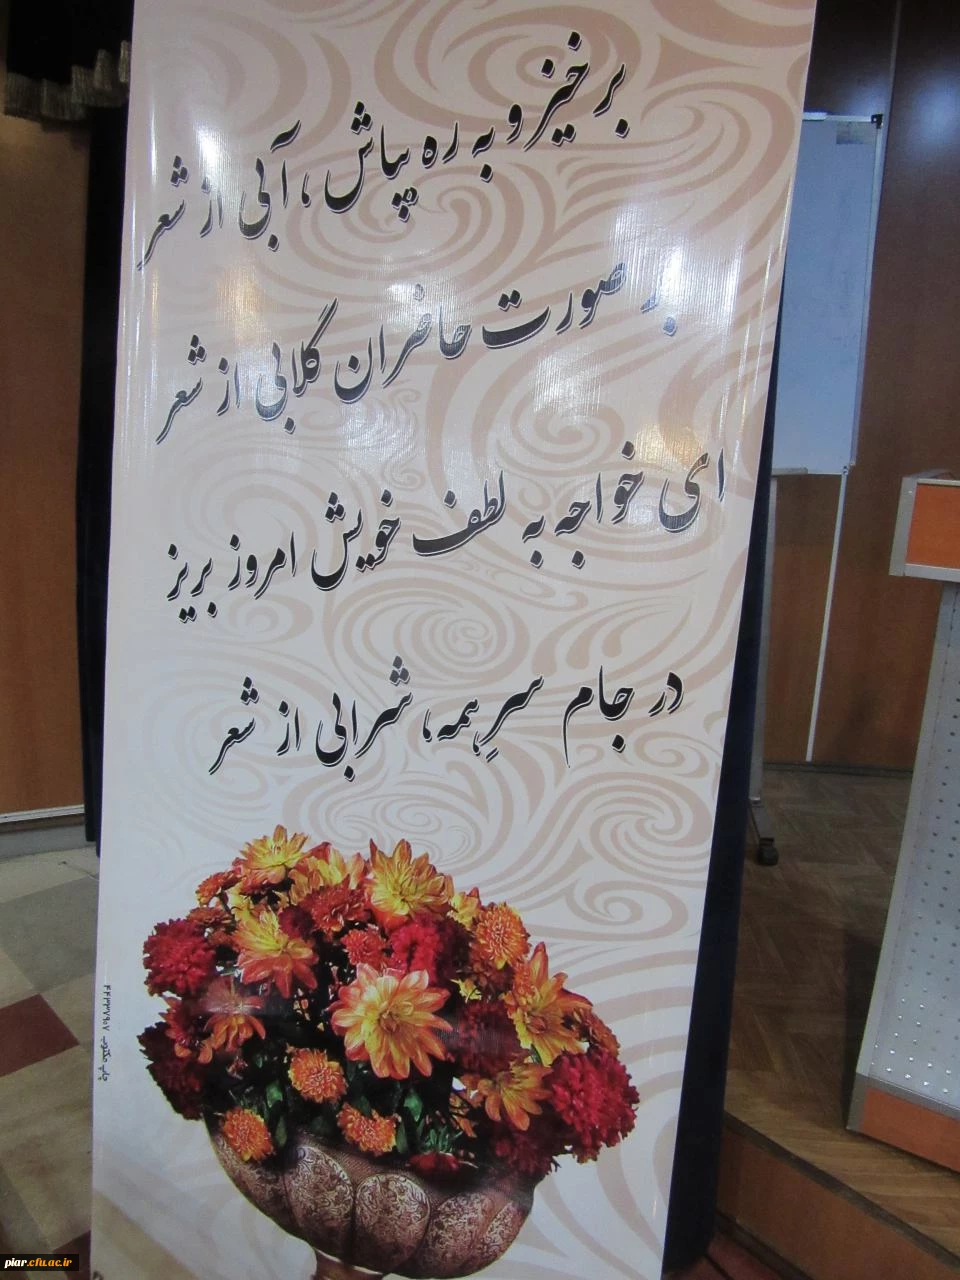 بر خیز و به ره بپاش ، آبی از شعر
بر صورت حاضران گلابی از شعر
ای خواجه به لطف خویش امروز بریز
در جام سرِ همه، شرابی از شعر
چاپ مکتوب
piar.cfu.ac.ir